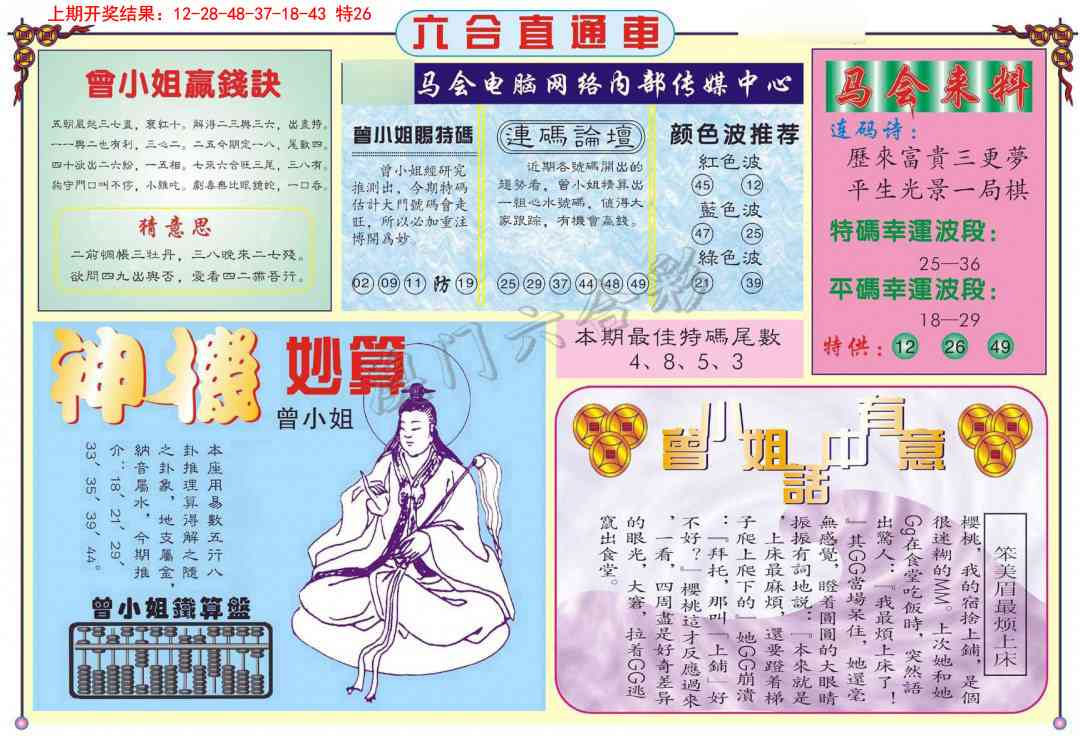 上期开奖结果：12-28-48-37-18-43 特26
六合直通車
曾小姐贏錢訣
五朝風起三七直，衰紅十。解得二三與三六，出直特。
一一與二也有利，三心二。二五今期定一八，尾數四。
四十欲出二六紛，一五相。七來六合旺三尾，三八有。
狗守門口叫不停，小雞吃。劇毒無比眼鏡蛇，一口吞。
猜意思
二前惆帳三牡丹，三八晚來二七殘。
欲問四九出與否，愛看四二佛吾行。
马会电脑网络内部传媒中心
曾小姐賜特碼
曾小姐經研究
推測出，今期特碼
估計大門號碼會走
旺，所以必加重注
博開爲妙
02 09 11 防 19
連碼論壇
近期各號碼開出的
趨勢看，曾小姐精算出
一組心水號碼，值得大
家跟踪，有機會贏錢。
25 29 37 44 48 49
颜色波推荐
紅色波
45 12
藍色波
47 25
綠色波
21 39
马会来料
连码诗：
歷來富貴三更夢
平生光景一局棋
特碼幸運波段：
25—36
平碼幸運波段：
18—29
特供：12 26 49
本期最佳特碼尾數
4、8、5、3
澳门六合彩
神機妙算
曾小姐
本座用易數五行八
卦推理算得解之隨
之卦象，地支屬金，
納音屬水，今期推
介：18、21、29、
33、35、39、44。
曾小姐鐵算盤
曾小姐話中有意
笨美眉最烦上床
櫻桃，我的宿捨上鋪，是個
很迷糊的MM。上次她和她
Gg在食堂吃飯時，突然語
出驚人：『我最煩上床了！
』其GG當場呆住，她還毫
無感覺，瞪着圓圓的大眼睛
振振有詞地説：『本來就是
，上床最麻煩，還要蹬着梯
子爬上爬下的』她GG崩潰
：『拜托，那叫『上鋪』好
不好？』櫻桃這才反應過來
，一看，四周盡是好奇差异
的眼光，大窘，拉着GG逃
竄出食堂。